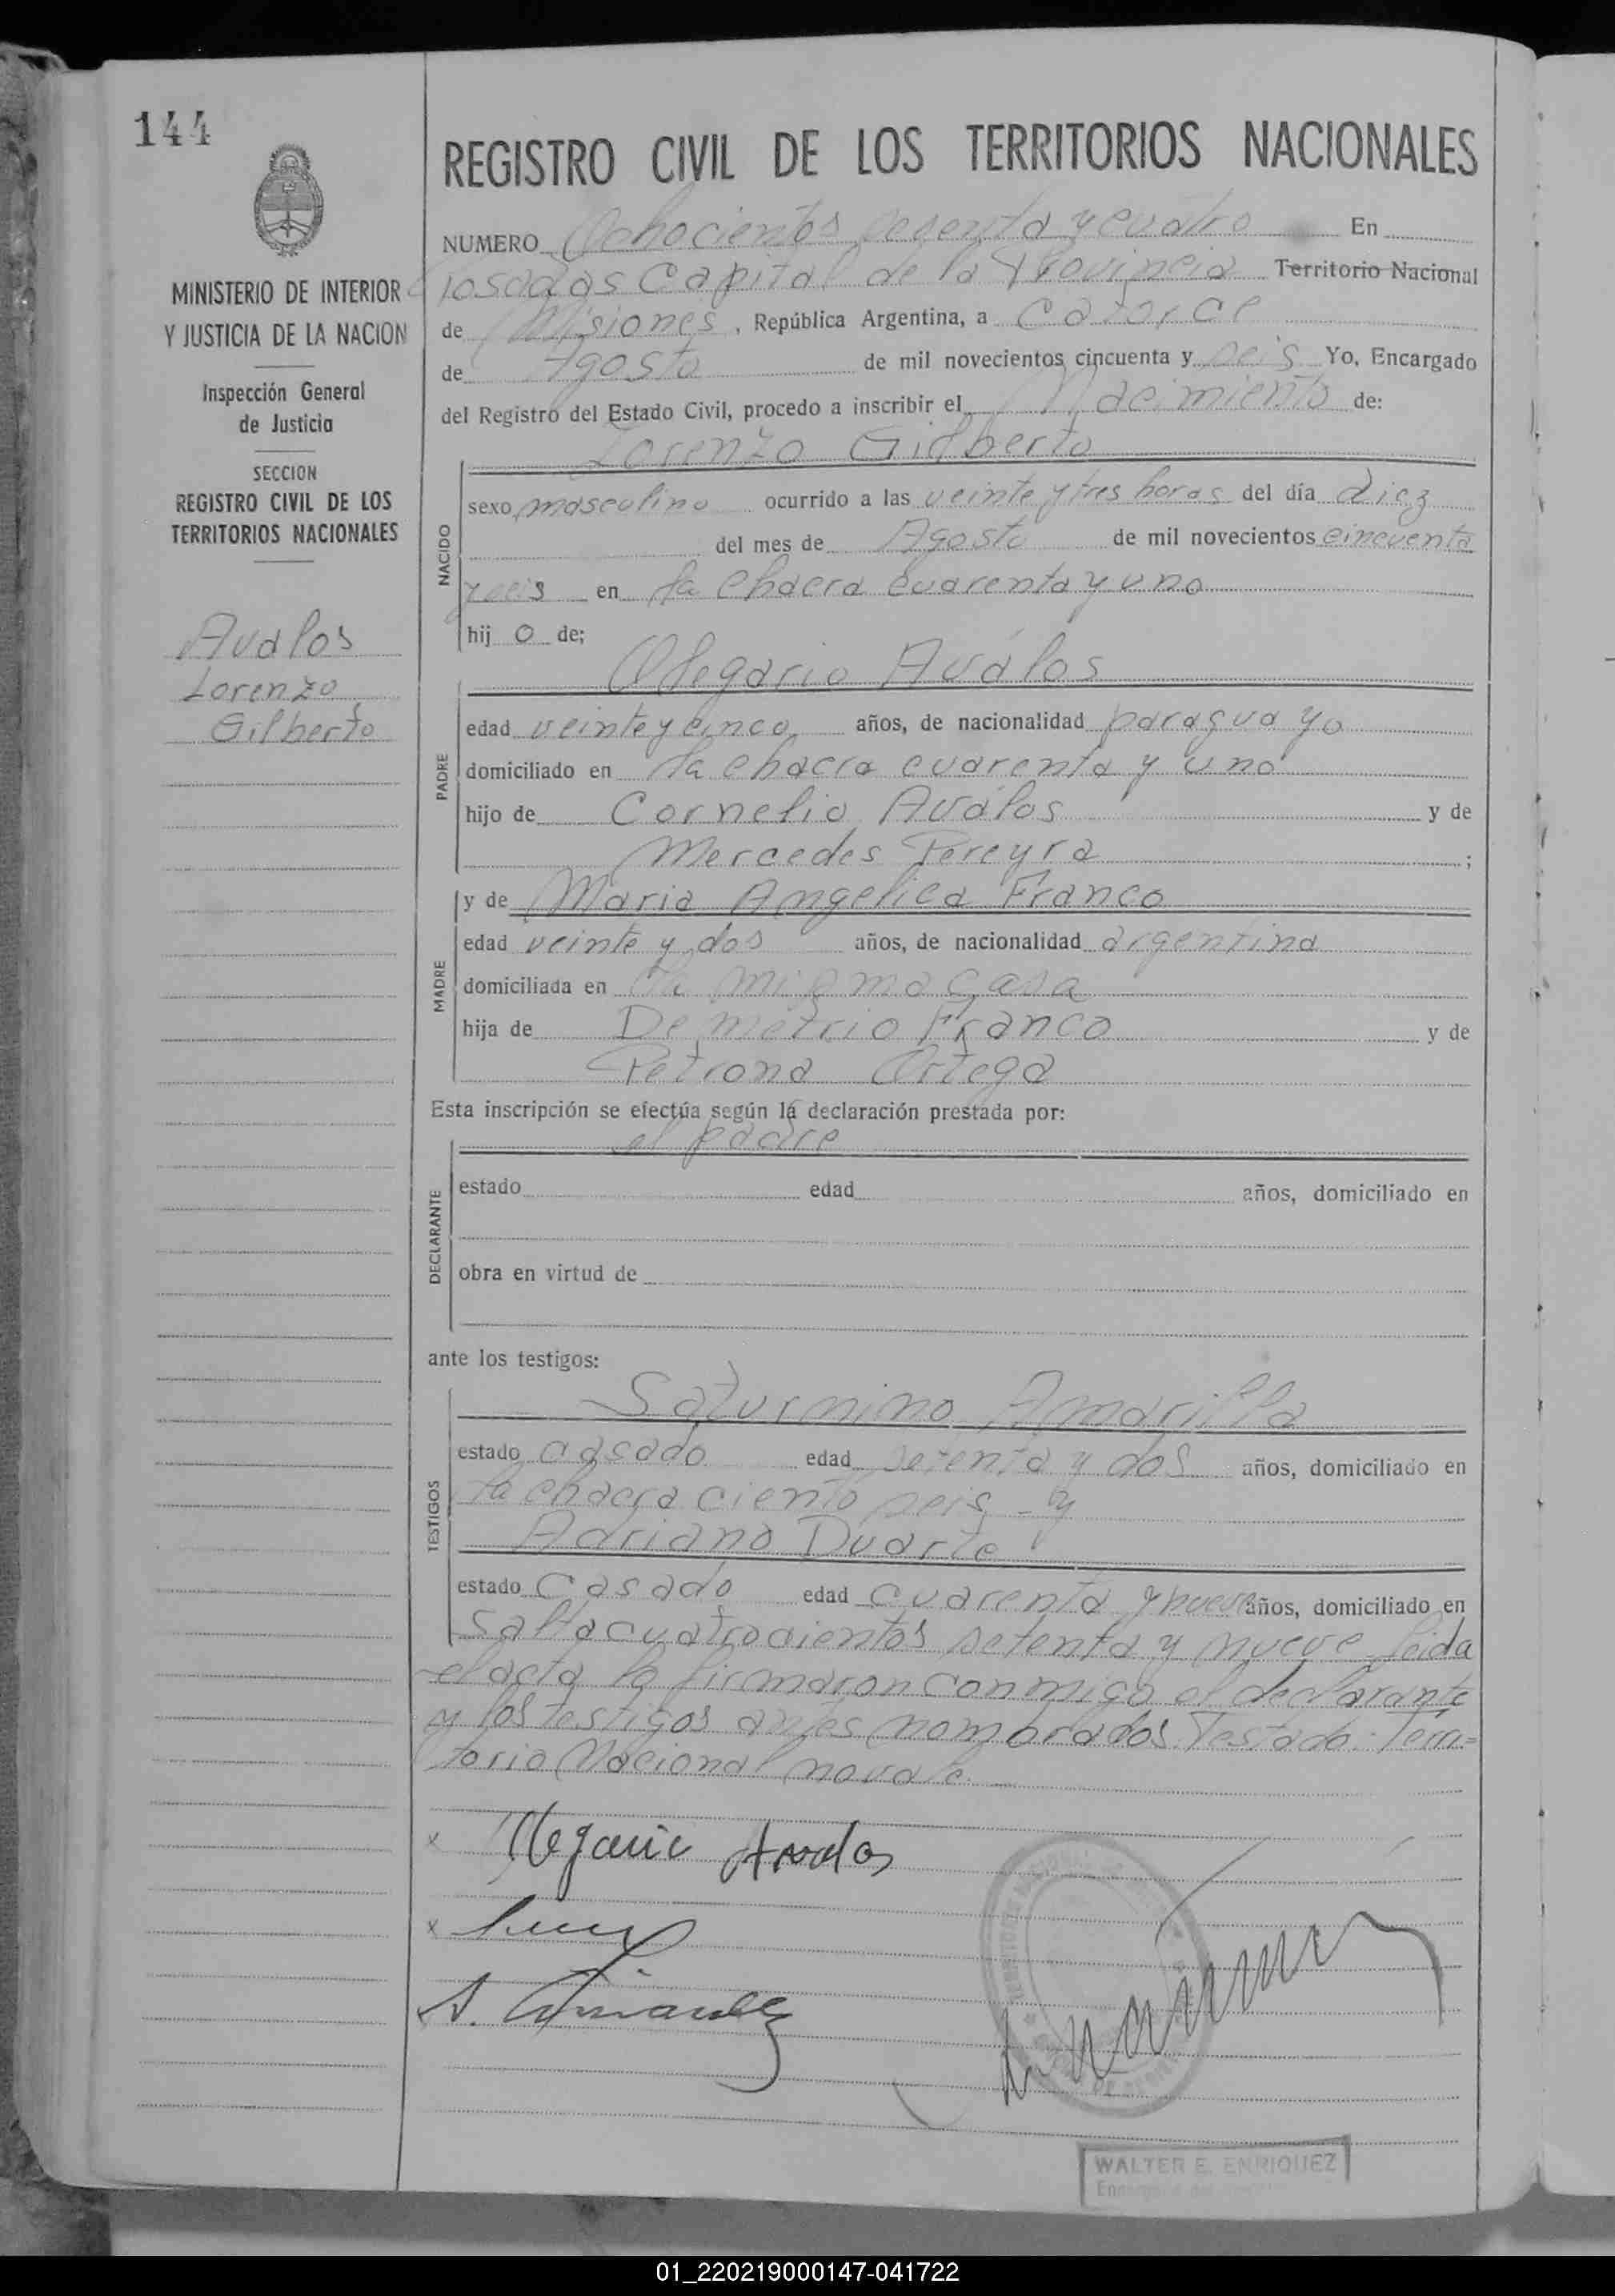 144
MINISTERIO DE INTERIOR
Y JUSTICIA DE LA NACION
Inspección General
de Justicia
SECCION
REGISTRO CIVIL DE LOS
TERRITORIOS NACIONALES
Avalos
Lorenzo
Gilberto
REGISTRO CIVIL DE LOS TERRITORIOS NACIONALES
NUMERO Ochocientos sesenta y cuatro En
Posadas Capital de la Provincia Territorio Nacional
de Misiones, República Argentina, a catorce
de Agosto de mil novecientos cincuenta y seis Yo, Encargado
del Registro del Estado Civil, procedo a inscribir el Nacimiento de:
Lorenzo Gilberto
NACIDO
sexo masculino ocurrido a las veinte y tres horas del día diez
del mes de Agosto de mil novecientos cincuenta
y seis en la chacra cuarenta y uno
hij o de;
Olegario Aválos
PADRE
edad veinte y cinco años, de nacionalidad paraguayo
domiciliado en la chacra cuarenta y uno
hijo de Cornelio Aválos y de
Mercedes Pereyra ;
y de Maria Angelica Franco
MADRE
edad veinte y dos años, de nacionalidad argentina
domiciliada en la misma casa
hija de Demetrio Franco y de
Petrona Ortega
Esta inscripción se efectúa según la declaración prestada por:
el padre
DECLARANTE
estado edad años, domiciliado en
obra en virtud de
ante los testigos:
Saturnino Amarilla
TESTIGOS
estado casado edad setenta y dos años, domiciliado en
la chacra ciento seis - y
Adriano Duarte
estado casado edad cuarenta y nueve años, domiciliado en
Salta cuatrocientos setenta y nueve leida
el acta la firmaron conmigo el declarante
y los testigos antes nombrados. Testado: Terri=
torio Nacional no vale.
x Olegario Avalos
x
WALTER E. ENRIQUEZ
01_220219000147-041722